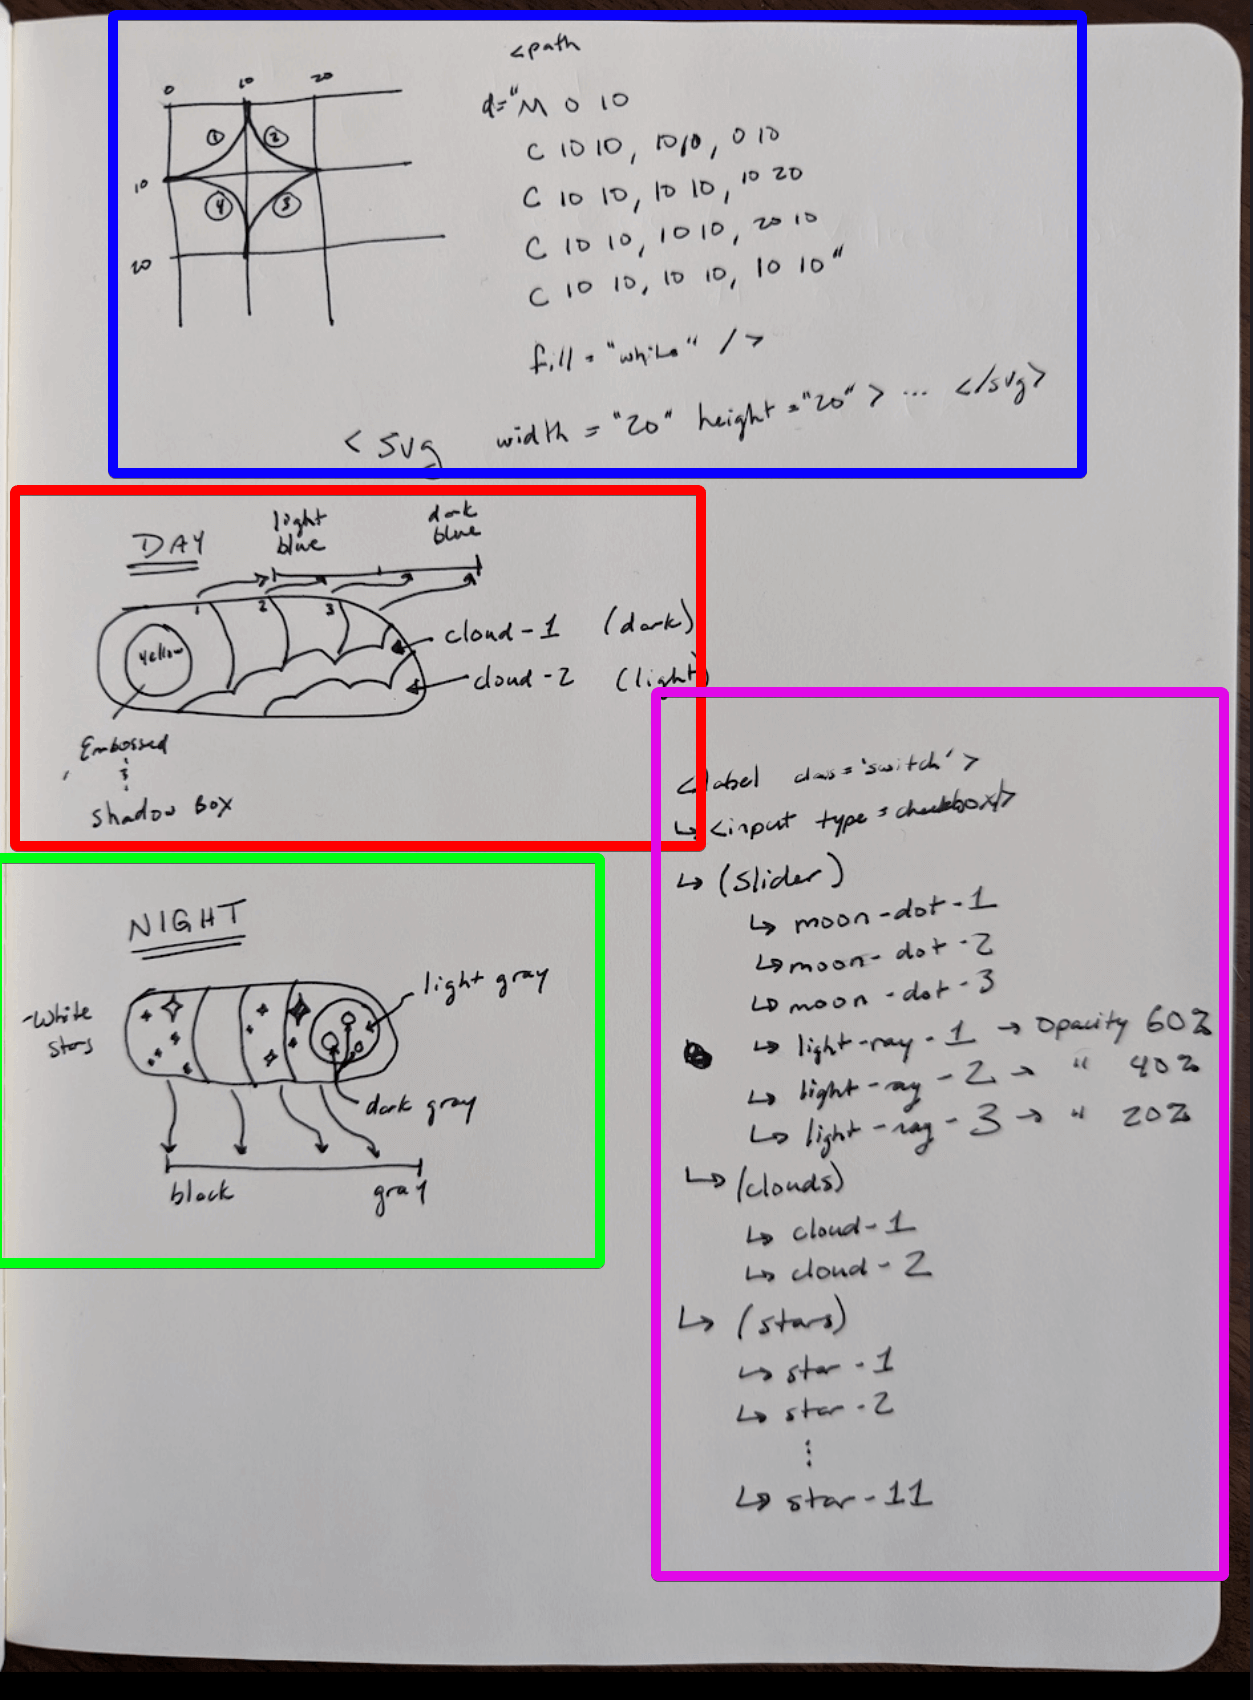 0 10 20
<path
d="M 0 10
① ②
C 10 10, 10 10, 0 10
10
C 10 10, 10 10, 10 20
④ ③
C 10 10, 10 10, 20 10
20
C 10 10, 10 10, 10 10"
fill = "white" />
<svg width = "20" height = "20" > ... </svg>
DAY
light blue
dark blue
1 2 3
Yellow
cloud-1 (dark)
cloud-2 (light)
Embossed
&
shadow box
<label class='switch'>
↳ <input type=checkbox/>
↳ (slider)
↳ moon-dot-1
↳ moon-dot-2
↳ moon-dot-3
↳ light-ray-1 → opacity 60%
↳ light-ray-2 → " 40%
↳ light-ray-3 → " 20%
↳ (clouds)
↳ cloud-1
↳ cloud-2
↳ (stars)
↳ star-1
↳ star-2
⋮
↳ star-11
NIGHT
light gray
-white
stars
dark gray
black gray